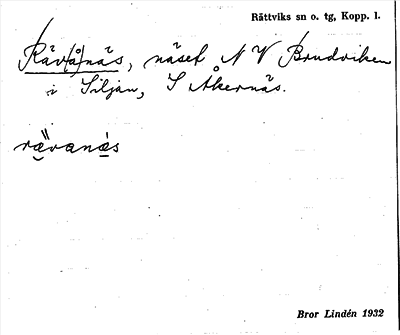 Rättviks sn o. tg, Kopp. l.
Räv(å)näs, näset N V Brudviken
i Siljan, S Åkernäs.
rævanäs
Bror Lindén 1932